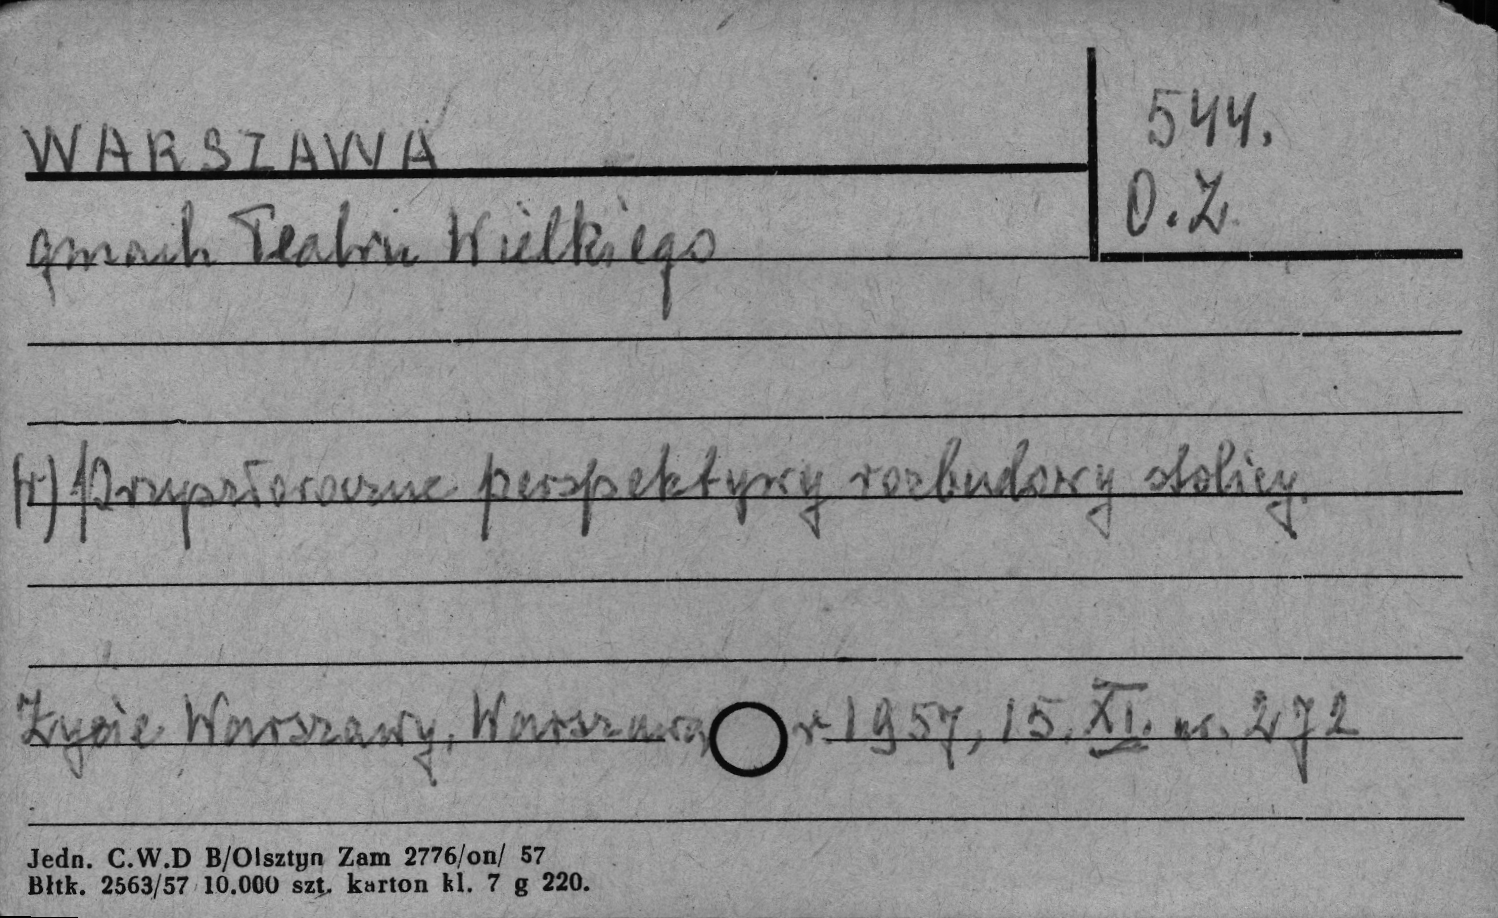 WARSZAWA
544.
O.Z.
gmach Teatru Wielkiego
(r) Przyszłoroczne perspektywy rozbudowy stolicy.
Życie Warszawy, Warszawa r. 1957, 15. XI. nr. 272
Jedn. C.W.D B/Olsztyn Zam 2776/on/ 57
Błtk. 2563/57 10.000 szt. karton kl. 7 g 220.